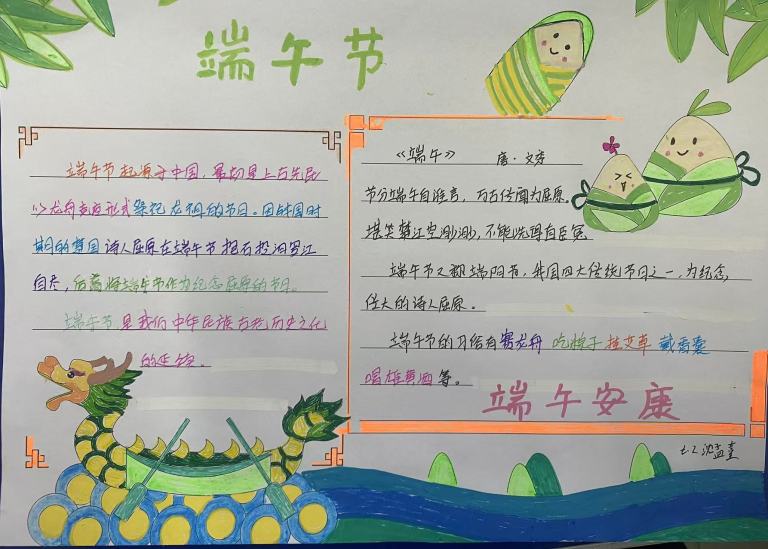 端午节
端午节起源于中国,最初是上古先民
以龙舟竞渡形式祭祀龙祖的节日。因战国时
期的楚国诗人屈原在端午节抱石投汨罗江
自尽,后亦将端午节作为纪念屈原的节日。
端午节是我们中华民族古老历史文化
的延续。
《端午》 唐·文秀
节分端午自谁言,万古传闻为屈原。
堪笑楚江空渺渺,不能洗得直臣冤
端午节又称端阳节,我国四大传统节日之一,为纪念
伟大的诗人屈原。
端午节的习俗有赛龙舟 吃粽子 挂艾草 戴香囊
喝雄黄酒等。
端午安康